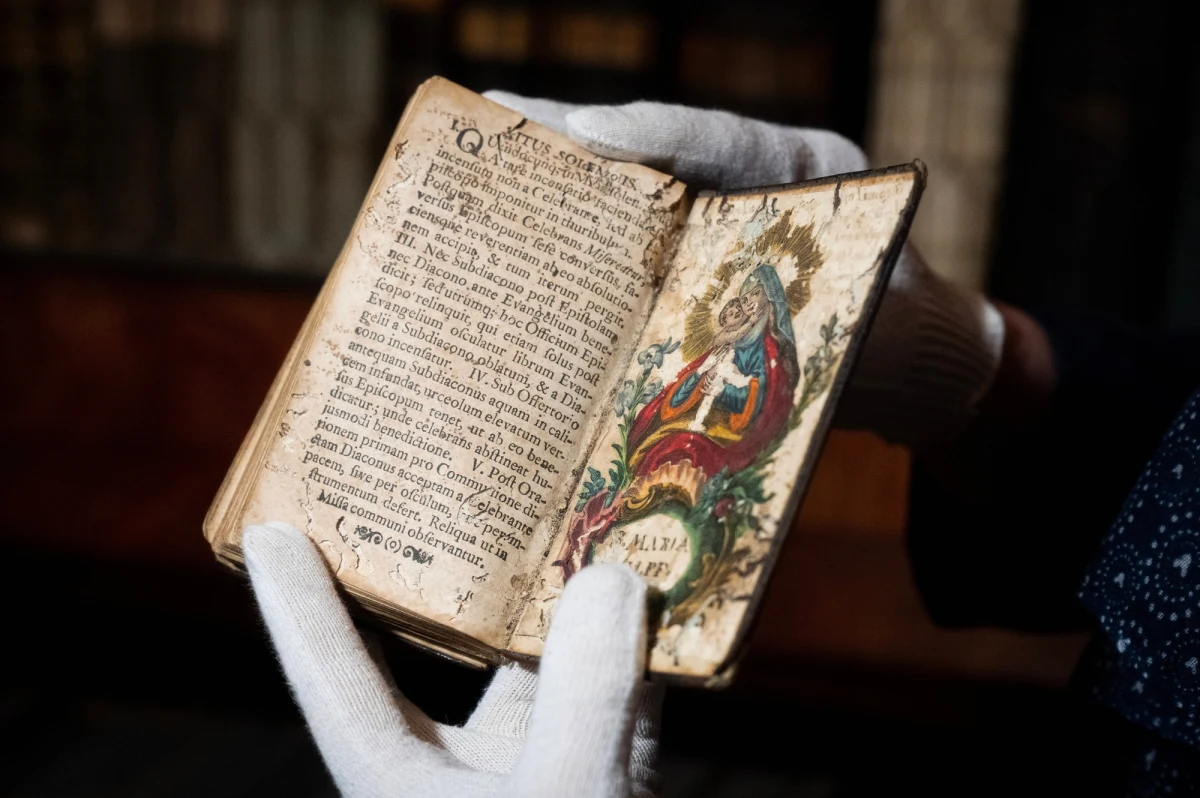 RITUS SOLEMNIS.
incenſatio facienda
incenſum non a Celebrante, ſed ab
piſcopo imponitur in thuribulum.
Poſtquam dixit Celebrans Miſereatur
verſus Epiſcopum ſeſe converſus, fa-
cienſque reverentiam ab eo abſolutio-
nem accipit, & tum iterum pergit.
III. Nec Subdiacono poſt Epiſtolam
nec Diacono ante Evangelium bene-
dicit; ſed utrumq; hoc Officium Epi-
ſcopo relinquit, qui etiam ſolus poſt
Evangelium oſculatur librum Evan-
gelii a Subdiacono oblatum, & a Dia-
cono incenſatur. IV. Sub Offertorio
antequam Subdiaconus aquam in cali-
cem infundat, urceolum elevatum ver-
ſus Epiſcopum tenet, ut ab eo bene-
dicatur; unde celebrans abſtineat hu-
jusmodi benedictione. V. Poſt Ora-
tionem primam pro Communione di-
ctam Diaconus acceptam a Celebrante
pacem, ſive per oſculum,
ſtrumentum defert. Reliqua ut in
Miſſa communi obſervantur.
S. MARIA